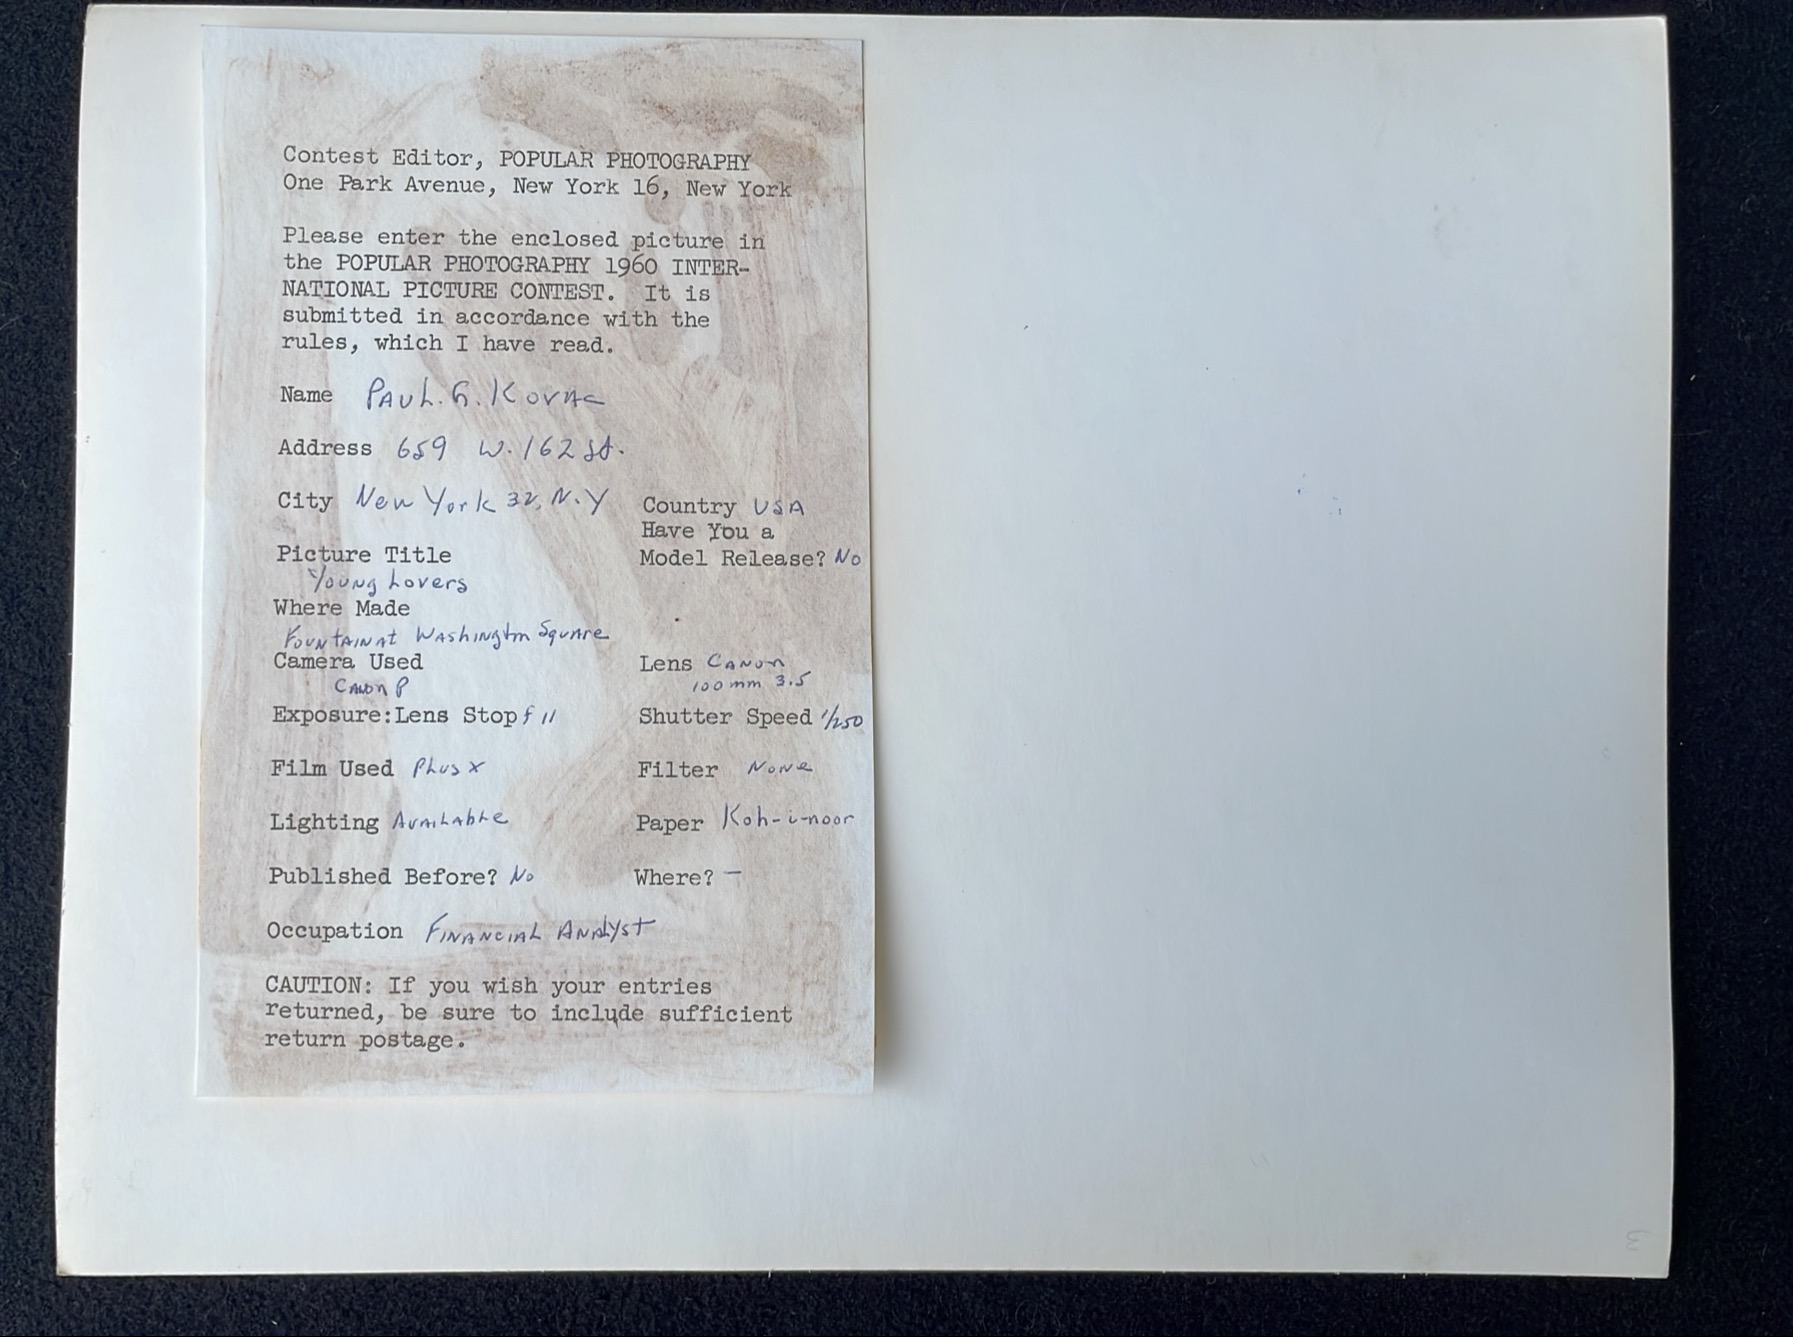 Contest Editor, POPULAR PHOTOGRAPHY
One Park Avenue, New York 16, New York
Please enter the enclosed picture in
the POPULAR PHOTOGRAPHY 1960 INTER-
NATIONAL PICTURE CONTEST. It is
submitted in accordance with the
rules, which I have read.
Name PAUL. G. KOVAC
Address 659 W. 162 St.
City New York 32, N.Y Country USA
Have You a
Picture Title Model Release? No
Young Lovers
Where Made
Fountain at Washington Square
Camera Used Lens Canon
Canon P 100mm 3.5
Exposure:Lens Stop f 11 Shutter Speed 1/250
Film Used Plus X Filter None
Lighting Available Paper Koh-i-noor
Published Before? No Where? —
Occupation Financial Analyst
CAUTION: If you wish your entries
returned, be sure to include sufficient
return postage.